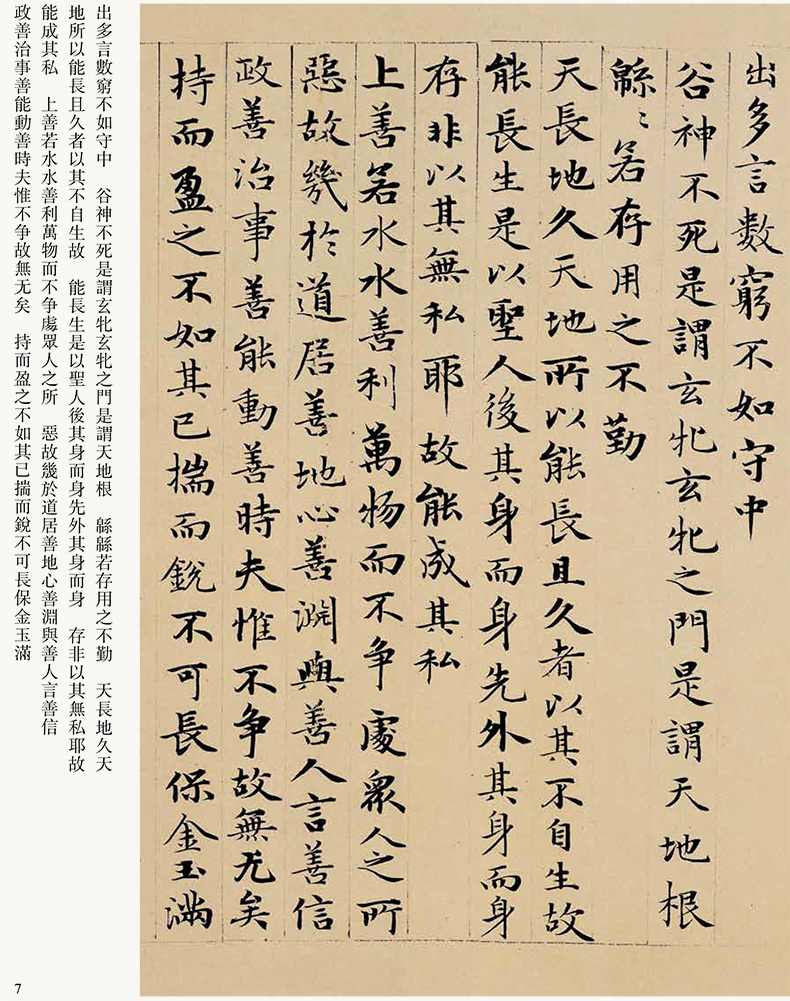 出多言數窮不如守中
谷神不死是謂玄牝玄牝之門是謂天地根
緜〻若存用之不勤
天長地久天地所以能長且久者以其不自生故
能長生是以聖人後其身而身先外其身而身
存非以其無私耶故能成其私
上善若水水善利萬物而不争處眾人之所
惡故幾於道居善地心善渊與善人言善信
政善治事善能動善時夫惟不争故無尤矣
持而盈之不如其已揣而銳不可長保金玉滿
出多言數窮不如守中　谷神不死是謂玄牝玄牝之門是謂天地根　緜緜若存用之不勤　天長地久天
地所以能長且久者以其不自生故　能長生是以聖人後其身而身先外其身而身　存非以其無私耶故
能成其私　上善若水水善利萬物而不争處眾人之所　惡故幾於道居善地心善淵與善人言善信
政善治事善能動善時夫惟不争故無无矣　持而盈之不如其已揣而銳不可長保金玉滿
7